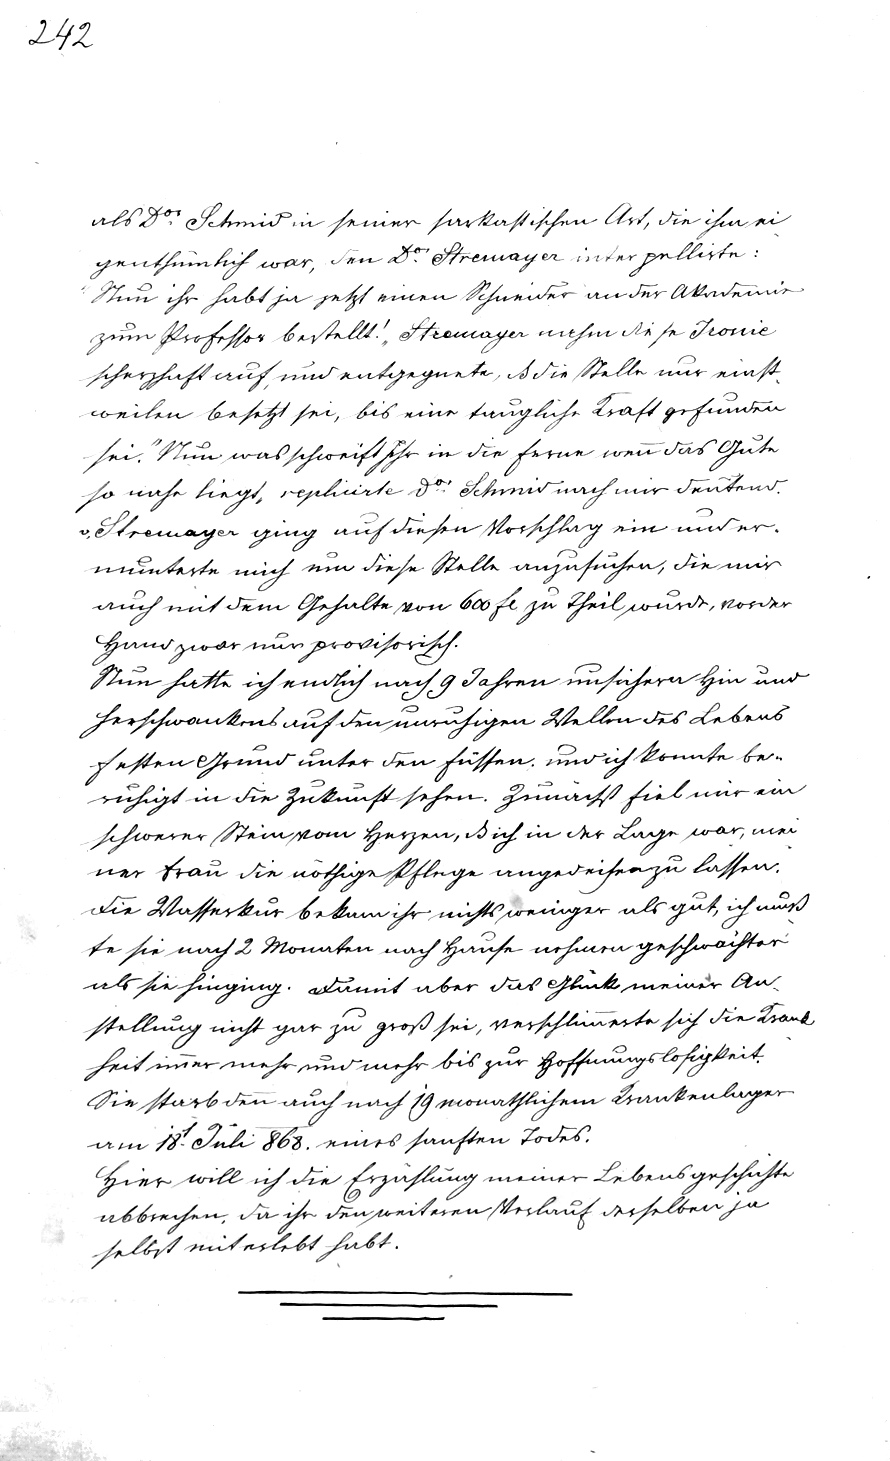 242
als Dor Schmid in seiner sarkastischen Art, die ihm ei
genthümlich war, den Dor Stremayer interpellirte:
"Nun ihr habt ja jetzt einen Schneider an der Akademie
zum Professor bestellt!„ Stremayer nahm diese Ironie
scherzhaft auf und entgegnete, ß die Stelle nur einst-
weilen besetzt sei, bis eine taugliche Kraft gefunden
sei." Nun was schweift Ihr in die Ferne wen̅ das Gute
so nahe liegt„ replicirte Dor Schmid nach mir deutend.
v. Stremayer ging auf diesen Vorschlag ein und er-
munterte mich um diese Stelle anzusuchen, die mir
auch mit dem Gehalte von 600 fl zu Theil wurde, vorder
Hand zwar nur provisorisch.
Nun hatte ich endlich nach 9 Jahren unsichern Hin und
Herschwankens auf den unruhigen Wellen des Lebens
festen Grund unter den Füssen. und ich konnte be-
ruhigt in die Zukunft sehen. Zunächst fiel mir ein
schwerer Stein vom Herzen, ß ich in der Lage war, mei
ner Frau die nöthige Pflege angedeihen zu lassen.
Die Wasserkur bekam ihr nichts weniger als gut, ich muß
te sie nach 2 Monaten nach Hause nehmen geschwächter
als sie hinging. Damit aber das Glück meiner An-
stellung nicht gar zu groß sei, verschlim̅erte sich die Krank
heit im̅er mehr und mehr bis zur Hoffnungslosigkeit.
Sie starb den̅ auch nach 19 monathlichem Krankenlager
am 18t Juli 868. eines sanften Todes.
Hier will ich die Erzählung meiner Lebensgeschichte
abbrechen, da ihr den weiteren Verlauf derselben ja
selbst mit erlebt habt.